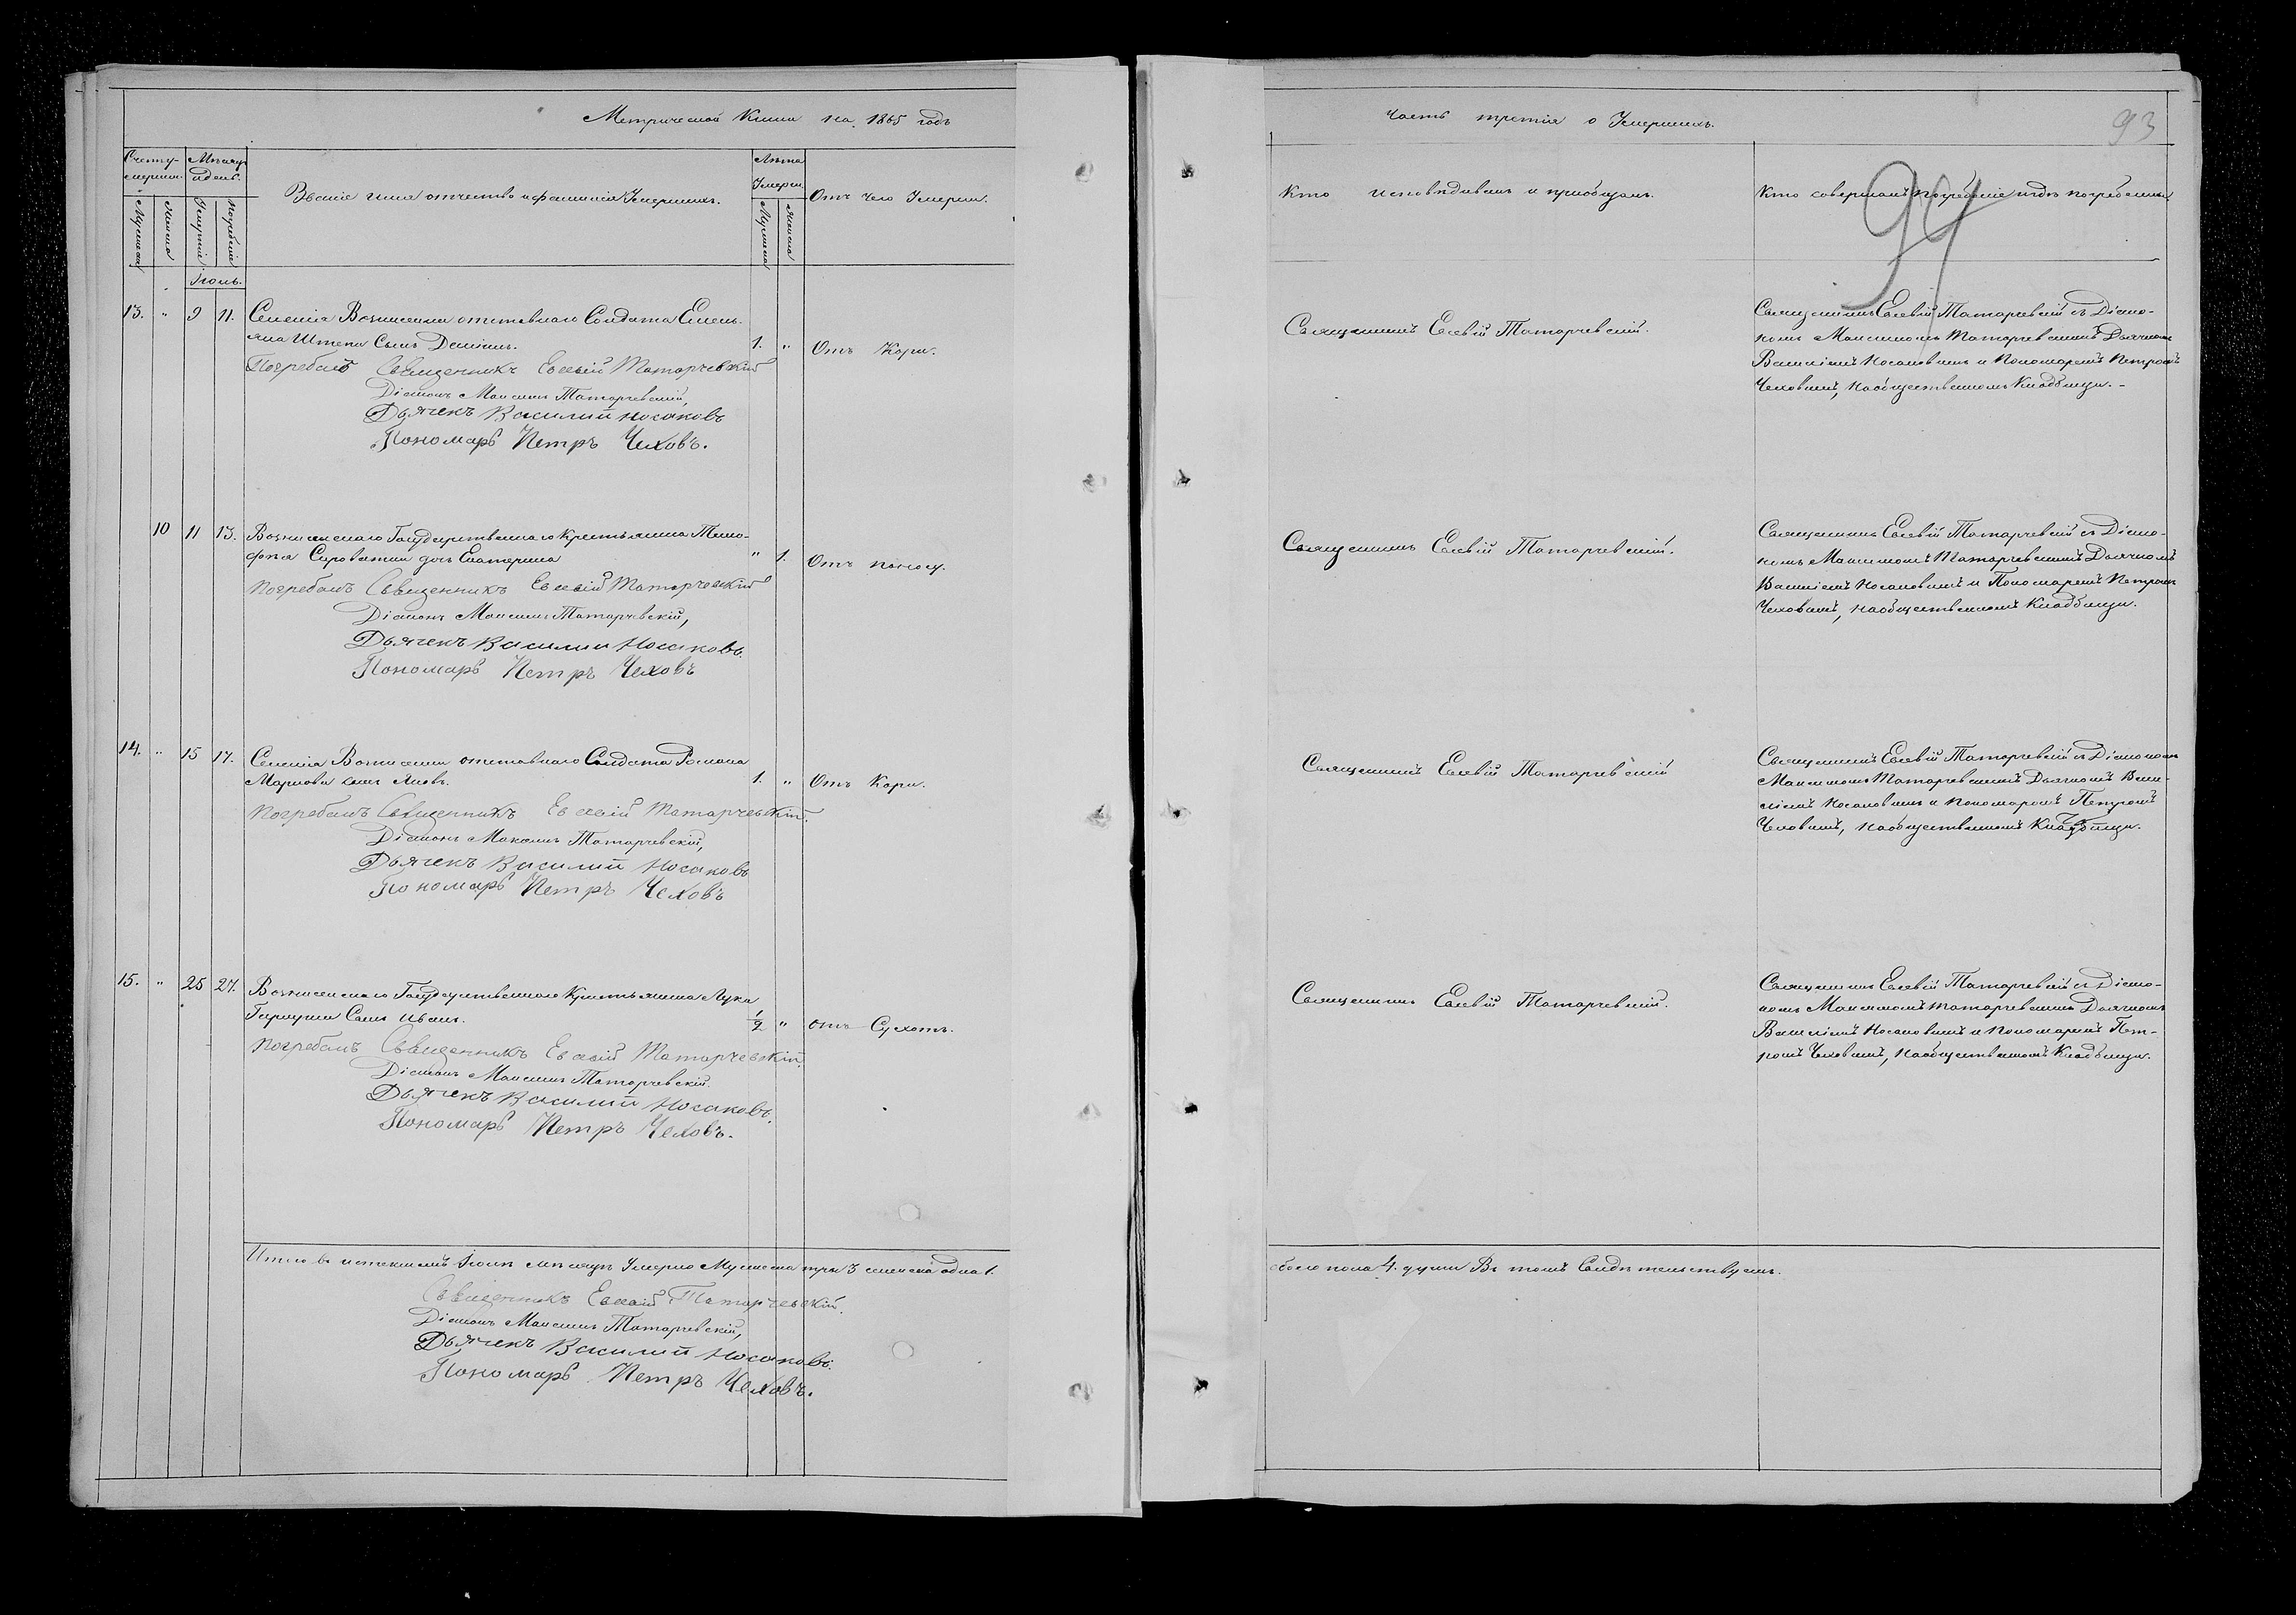 Метрической Книги на 1865 годъ
Часть третія о Умершихъ.
93
94
Счетъ умершихъ.
Мѣсяцъ и день.
Званіе имя отчество и фамилія Умершихъ.
Лѣта Умерш.
Отъ чего Умерли.
Кто исповѣдывалъ и пріобщалъ.
Кто совершалъ погребеніе и гдѣ погребены
Мужеска
Женска
Умертвія
Погребенія
Мужеска
Женска
Іюль.
13. " 9 11. Селенія Вознесенки отставнаго Солдата Емель-
яна Штепа Сынъ Даміанъ. 1. " Отъ Кори.
Погребалъ Священникъ Евсевій Татарчевскій
Діаконъ Максимъ Татарчевскій,
Дьячекъ Василий Носаковъ
Пономарь Петръ Чеховъ.
Священникъ Евсевій Татарчевскій.
Священникъ Евсевій Татарчевскій съ Діако-
номъ Максимомъ Татарчевскимъ Дьячкомъ
Василіемъ Носаковымъ и Пономаремъ Петромъ
Чеховымъ, на общественномъ Кладбищи.-
10 11 13. Вознесенскаго Государственнаго Крестьянина Тимо-
фея Сыроватки дочь Екатерина " 1. Отъ поносу.
Погребалъ Священникъ Евсевій Татарчевскій
Діаконъ Максимъ Татарчевскій,
Дьячекъ Василии Носаковъ.
Пономарь Петръ Чеховъ
Священникъ Евсевій Татарчевскій.
Священникъ Евсевій Татарчевскій съ Діако-
номъ Максимомъ Татарчевскимъ Дьячкомъ
Василіемъ Носаковымъ и Пономаремъ Петромъ
Чеховымъ, на общественномъ Кладбищи.
14. " 15 17. Селенія Вознесенки отставнаго Солдата Романа
Маркова сынъ Яковъ. 1. " Отъ Кори.
Погребалъ Священникъ Евсевій Татарчевскій.
Діаконъ Максимъ Татарчевскій,
Дьячекъ Василий Носаковъ
Пономарь Петръ Чеховъ
Священникъ Евсевій Татарчевскій
Священникъ Евсевій Татарчевскій съ Діакономъ
Максимомъ Татарчевскимъ Дьячкомъ Васи-
ліемъ Носаковымъ и пономаремъ Петромъ
Чеховымъ, на общественномъ Кладбищи.
15. " 25 27. Вознесенскаго Государственнаго Крестьянина Луки
Сынъ Иванъ. 1/2 " отъ Сухотъ.
Погребалъ Священникъ Евсевій Татарчевскій.
Діаконъ Максимъ Татарчевскій.
Дьячекъ Василий Носаковъ.
Пономарь Петръ Чеховъ.
Священникъ Евсевій Татарчевскій.
Священникъ Евсевій Татарчевскій съ Діако-
номъ Максимомъ Татарчевскимъ Дьячкомъ
Василіемъ Носаковымъ и пономаремъ Пет-
ромъ Чеховымъ, на общественномъ Кладбищи.
Итого въ истекшемъ Іюлѣ мѣсяцѣ Умерло Мужеска три 3 женска одна 1.
обоего пола 4. души Въ томъ Свидѣтельствуемъ.
Священникъ Евсевій Татарчевскій.
Діаконъ Максимъ Татарчевскій,
Дьячекъ Василий Носаковъ.
Пономарь Петръ Чеховъ.